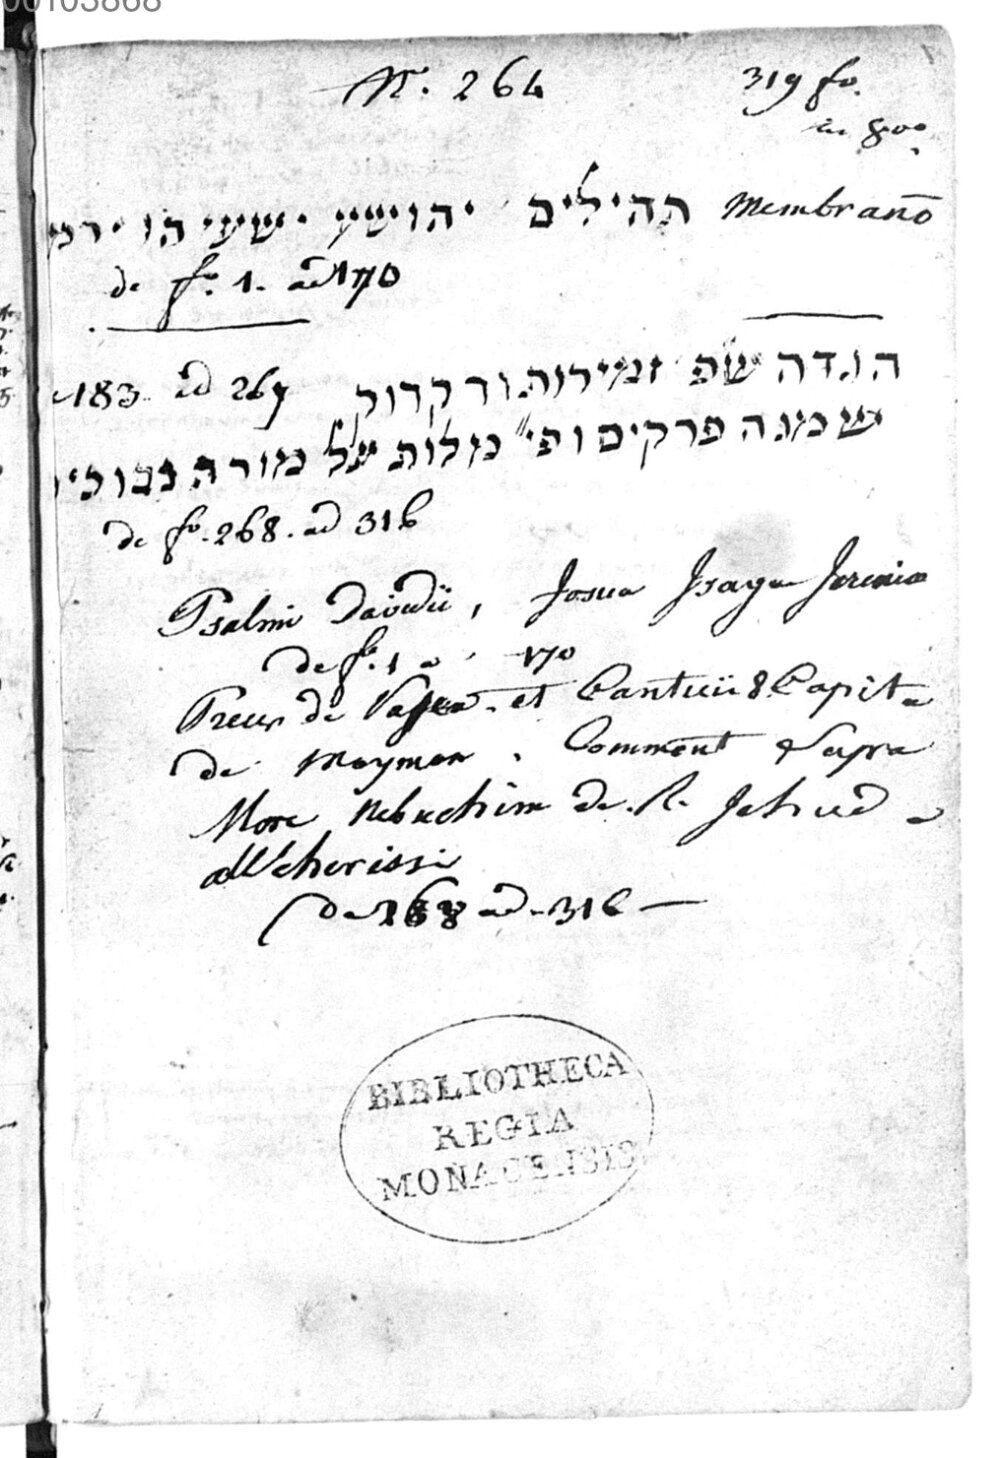 00103868
N. 264 319 fo.
in 8vo
תהילים יהושע ישעיהו ירמ membrano
de fo. 1. ad 170
הגדה של זמירות ודקדוק 183 ad 267
שמנה פרקים ופי׳ מלות על מורה נבוכי
de fo. 268. ad 316
Psalmi Davidii, Josua Isaya Jeremia
de fo. 1 a 170
Preces de et Cantici 8 Capita
de Maymon. Comment supra
More Nebuchim de R. Jehuda
alcharissi
de 268 ad 316
BIBLIOTHECA
REGIA
MONACENSIS